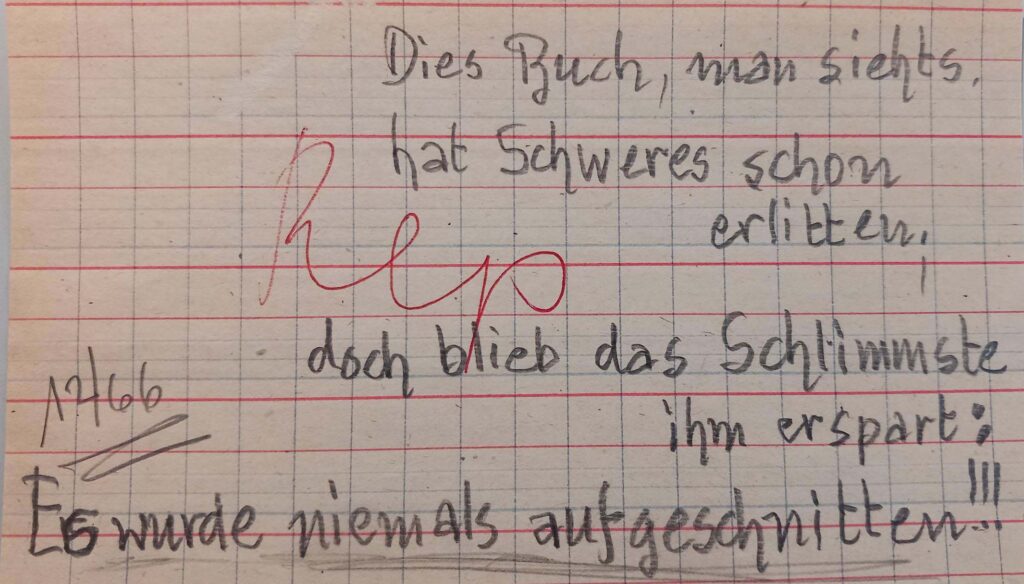 Dies Buch, man siehts,
hat Schweres schon
erlitten,
Rep
doch blieb das Schlimmste
12/66
ihm erspart:
Es wurde niemals aufgeschnitten!!!